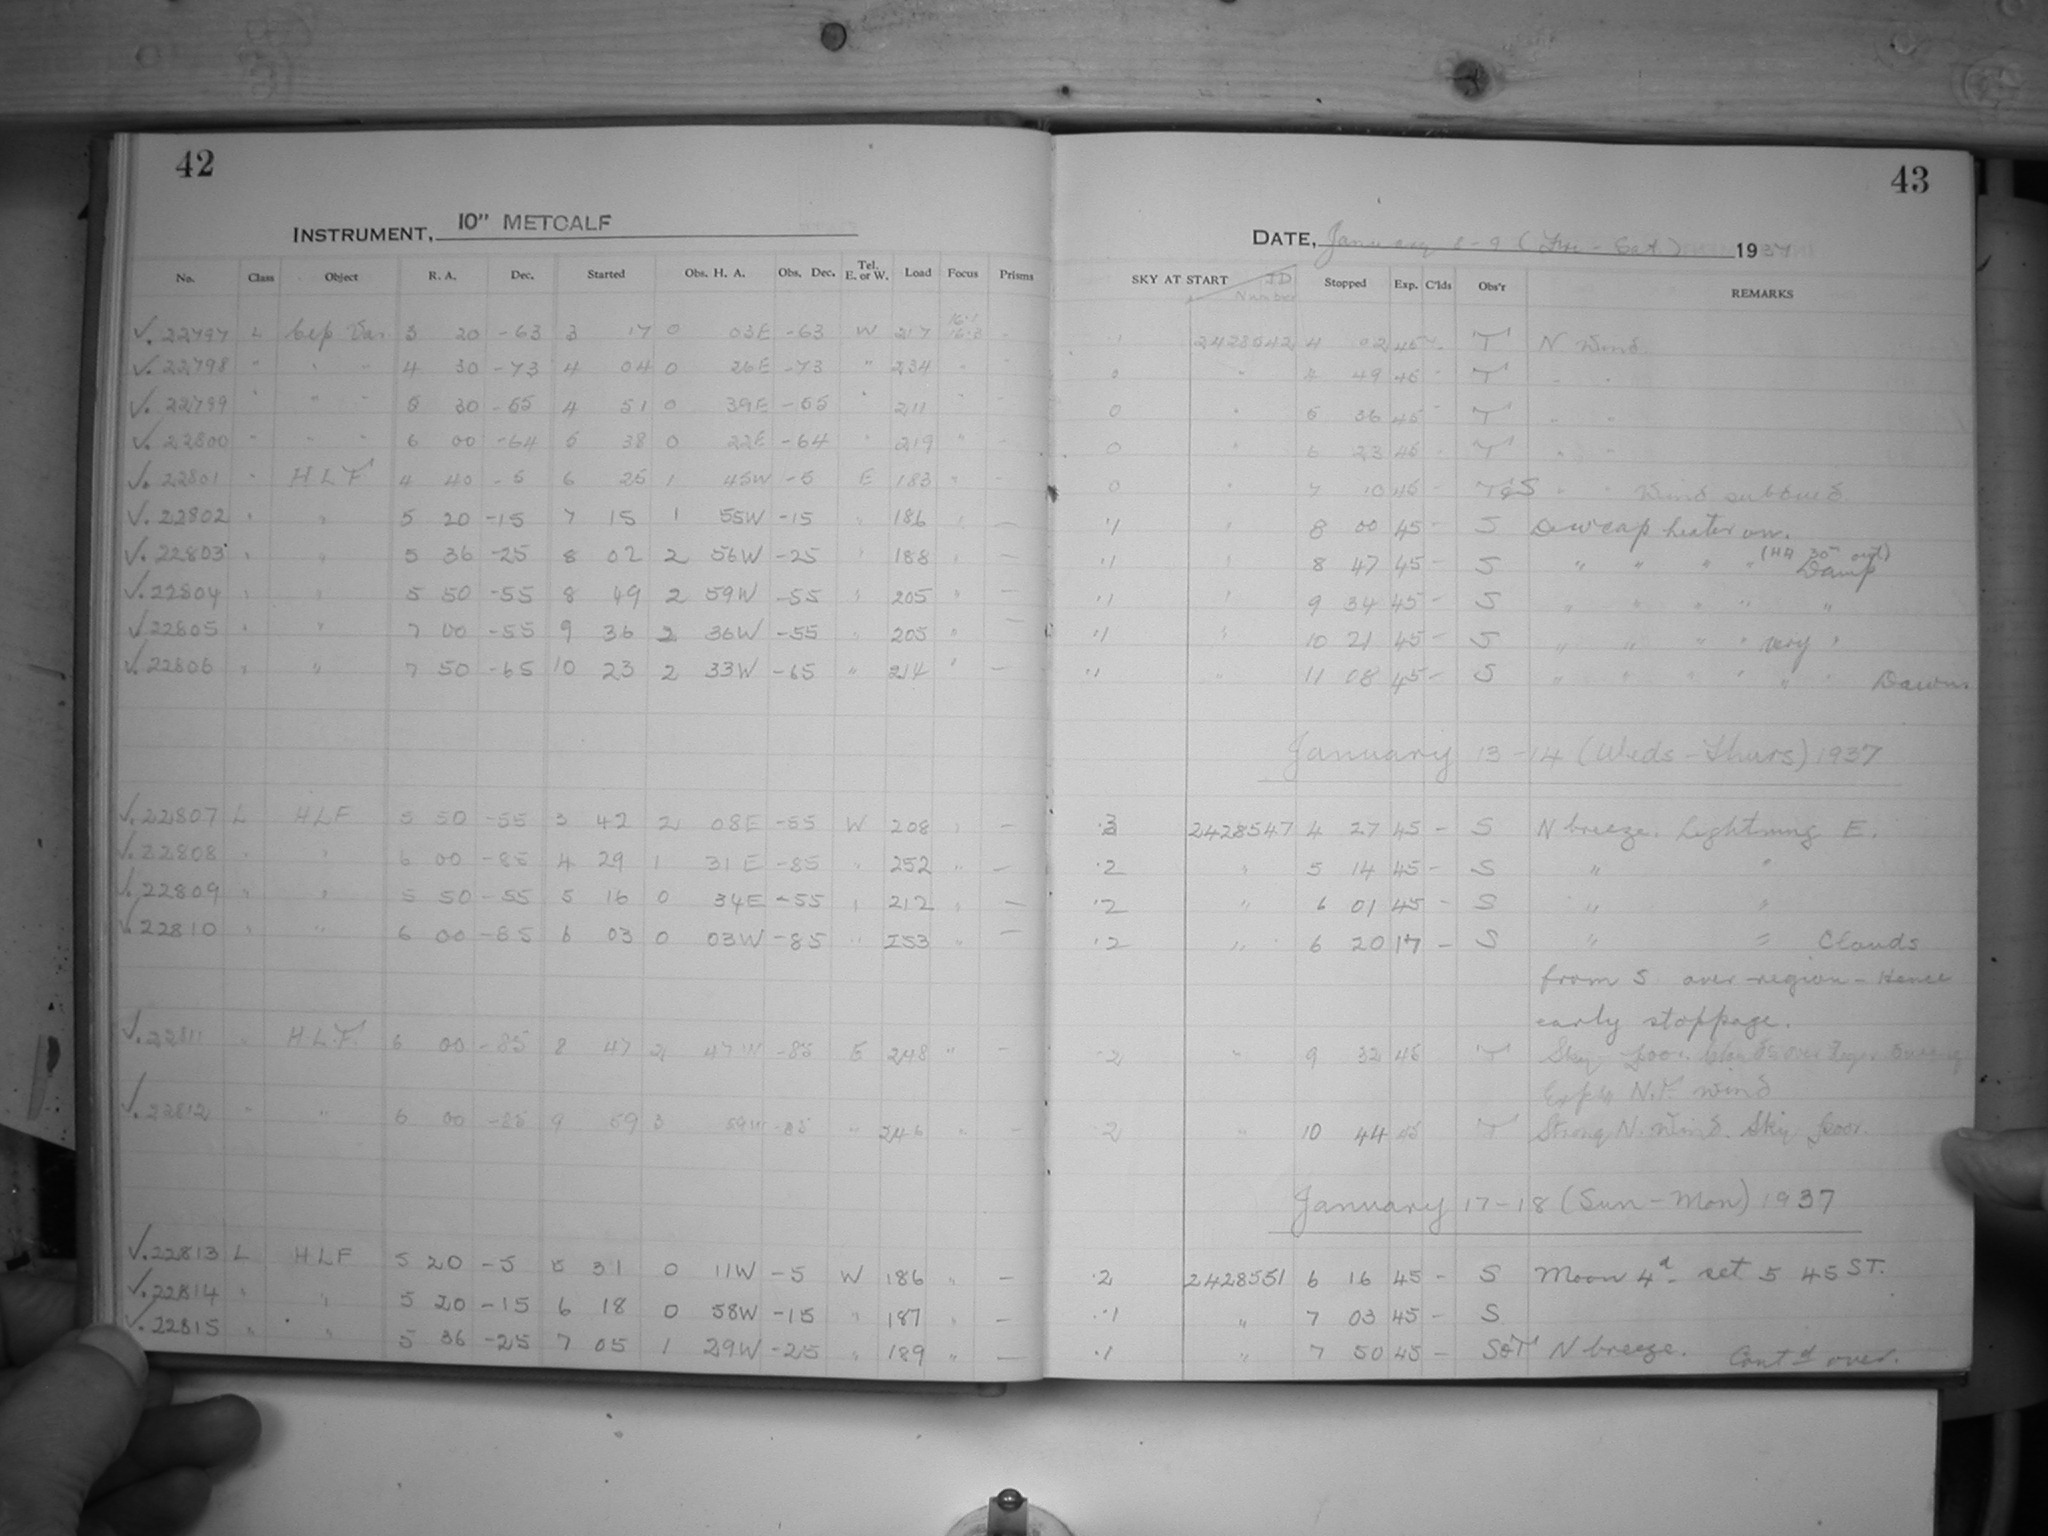 42
INSTRUMENT, 10" METCALF
No. Class Object R. A. Dec. Started Obs. H. A. Obs. Dec. Tel. E. or W. Load Focus Prisms
√. 22797 L Cep Var. 3 20 -63 3 17 0 03E -63 W 217 16.1 16.3 -
√. 22798 " " " 4 30 -73 4 04 0 26E -73 " 234 " -
√. 22799 " " " 5 30 -55 4 51 0 39E -55 " 211 " -
√. 22800 " " " 6 00 -64 5 38 0 22E -64 " 219 " -
√. 22801 " HLF 4 40 -5 6 25 1 45W -5 E 183 " -
√. 22802 " " 5 20 -15 7 15 1 55W -15 " 186 " -
√. 22803 " " 5 36 -25 8 02 2 56W -25 " 188 " -
√. 22804 " " 5 50 -55 8 49 2 59W -55 " 205 " -
√. 22805 " " 7 00 -55 9 36 2 36W -55 " 205 " -
√. 22806 " " 7 50 -65 10 23 2 33W -65 " 214 " -
√. 22807 L HLF 5 50 -55 3 42 2 08E -55 W 208 " -
√. 22808 " " 6 00 -85 4 29 1 31E -85 " 252 " -
√. 22809 " " 5 50 -55 5 16 0 34E -55 " 212 " -
√. 22810 " " 6 00 -85 6 03 0 03W -85 " 253 " -
√. 22811 " H.L.F. 6 00 -85 8 47 2 47W -85 E 248 " -
√. 22812 " " 6 00 -85 9 59 3 59W -85 " 246 " -
√. 22813 L HLF 5 20 -5 5 31 0 11W -5 W 186 " -
√. 22814 " " 5 20 -15 6 18 0 58W -15 " 187 " -
√. 22815 " " 5 36 -25 7 05 1 29W -25 " 189 " -
43
DATE, January 8-9 (Fri - Sat) 1937
SKY AT START JD Number Stopped Exp. C'lds Obs'r REMARKS
1 2428542 4 02 45 - T N Wind.
0 " 4 49 45 - T " "
0 " 5 36 45 - T " "
0 " 6 23 45 - T " "
0 " 7 10 45 - T&S " " Wind subdued
.1 " 8 00 45 - S Dewcap heater on.
.1 " 8 47 45 - S " " " " (HA 30m out) Damp
.1 " 9 34 45 - S " " " " "
.1 " 10 21 45 - S " " " " very "
.1 " 11 08 45 - S " " " " " " Dawn.
January 13-14 (Weds-Thurs) 1937
.3 2428547 4 27 45 - S N breeze. Lightning E.
.2 " 5 14 45 - S " "
.2 " 6 01 45 - S " "
.2 " 6 20 17 - S " = Clouds
from S. over region - Hence
early stoppage.
2 " 9 32 45 T Sky poor. Clouds over
Exp. wind
2 " 10 44 45 T Strong N. Wind. Sky poor.
January 17-18 (Sun-Mon) 1937
.2 2428551 6 16 45 - S Moon 4d. set 5 45 ST.
.1 " 7 03 45 - S
.1 " 7 50 45 - S&T N breeze. Contd over.